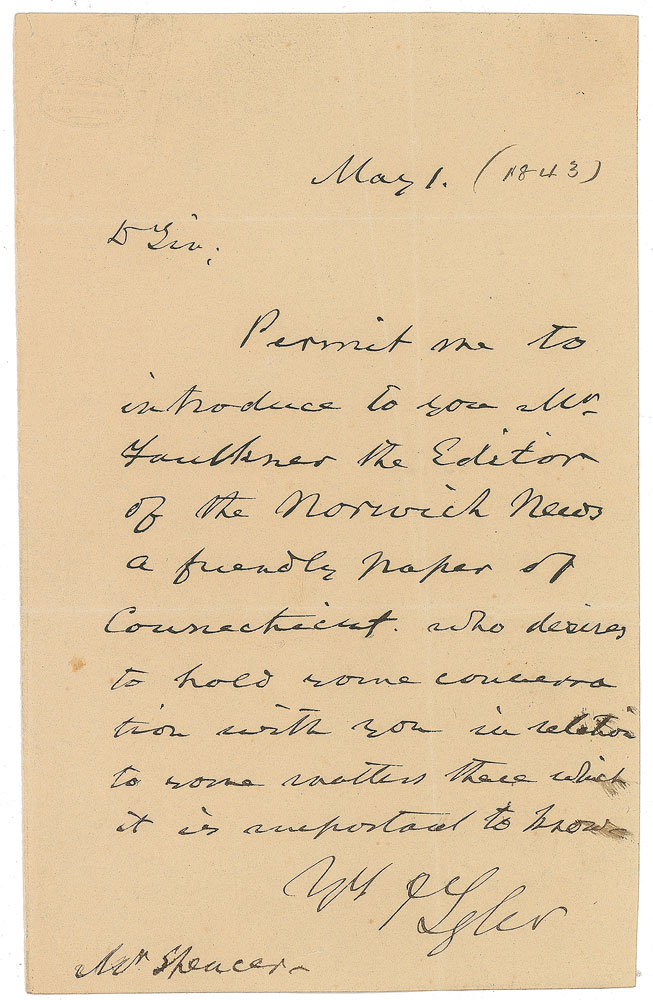 May 1. (1843)
D Sir,
Permit me to
introduce to you Mr
Faulkner the Editor
of the Norwich News
a friendly paper of
Connecticut. who desires
to hold some conversa
tion with you in relation
to some matters there which
it is important to know
Yrs J Tyler
Mr Spencer-